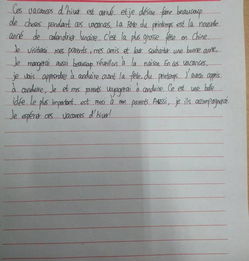 Ces vacances d'hiver est arrivé. et je désire faire beaucoup
de choses pendant ces vacances. La Fête du printemps est la nouvelle
anné de calandrier lunaire. C'est la plus grosse fête en Chine.
Je visiterai mes parents, mes amis et leur souhaiter une bonne année.
Je mangerai aussi beaucoup réveillon à la maison. En ces vacances,
je vais apprendre à conduire avant la fête du printemps. J'aurai appris
à conduire. Je et mes parents voyagerai à conduire. Ce est une belle
idée. Le plus important est moi à mes parents. Aussi, je ils accompagnerai.
Je espère ces vacances d'hiver!